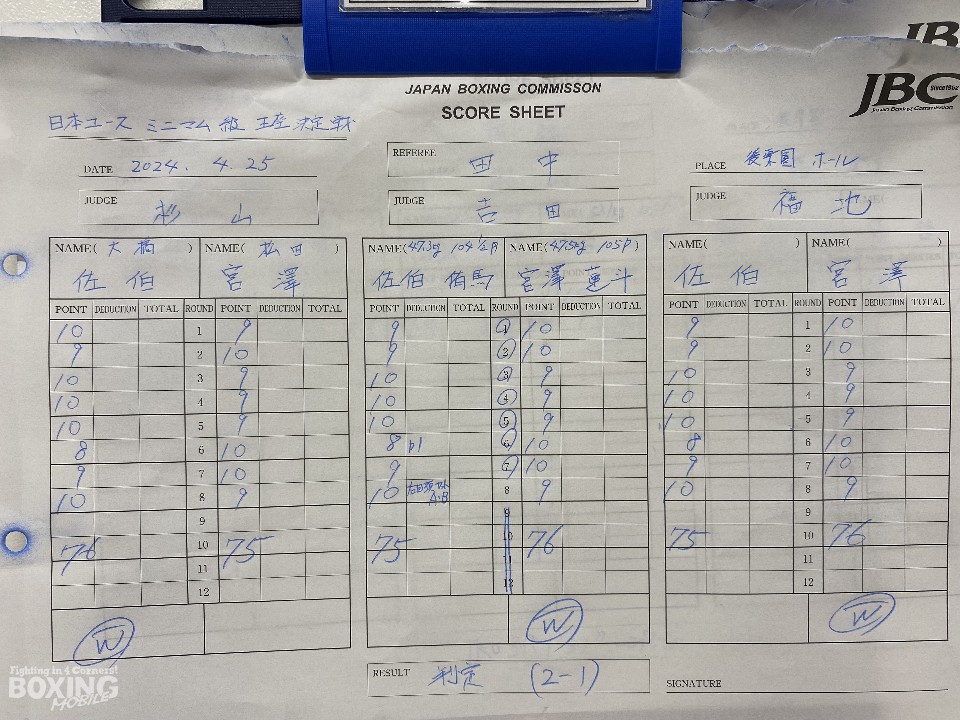 JB
JBC
Since1952
Japan Boxing Commission
JAPAN BOXING COMMISSON
SCORE SHEET
日本ユース ミニマム級 王座決定戦
DATE 2024. 4. 25
REFEREE 田中
PLACE 後楽園ホール
JUDGE 杉山
JUDGE 吉田
JUDGE 福地
NAME( 大橋 ) NAME( 松田 )
佐伯 宮澤
POINT DEDUCTION TOTAL ROUND POINT DEDUCTION TOTAL
10 1 9
9 2 10
10 3 9
10 4 9
10 5 9
8 6 10
9 7 10
10 8 9
9
76 10 75
11
12
W
NAME(47.3kg 104 1/4 P NAME(47.5kg 105P)
佐伯 侑馬 宮澤 蓮斗
POINT DEDUCTION TOTAL ROUND POINT DEDUCTION TOTAL
9 1 10
9 2 10
10 3 9
10 4 9
10 5 9
8 D1 6 10
9 7 10
10 8 9
9
75 10 76
11
12
W
NAME( ) NAME( )
佐伯 宮澤
POINT DEDUCTION TOTAL ROUND POINT DEDUCTION TOTAL
9 1 10
9 2 10
10 3 9
10 4 9
10 5 9
8 6 10
9 7 10
10 8 9
9
75 10 76
11
12
W
RESULT 判定 (2-1)
SIGNATURE
Fighting in 4 Corners!
BOXING
MOBILE